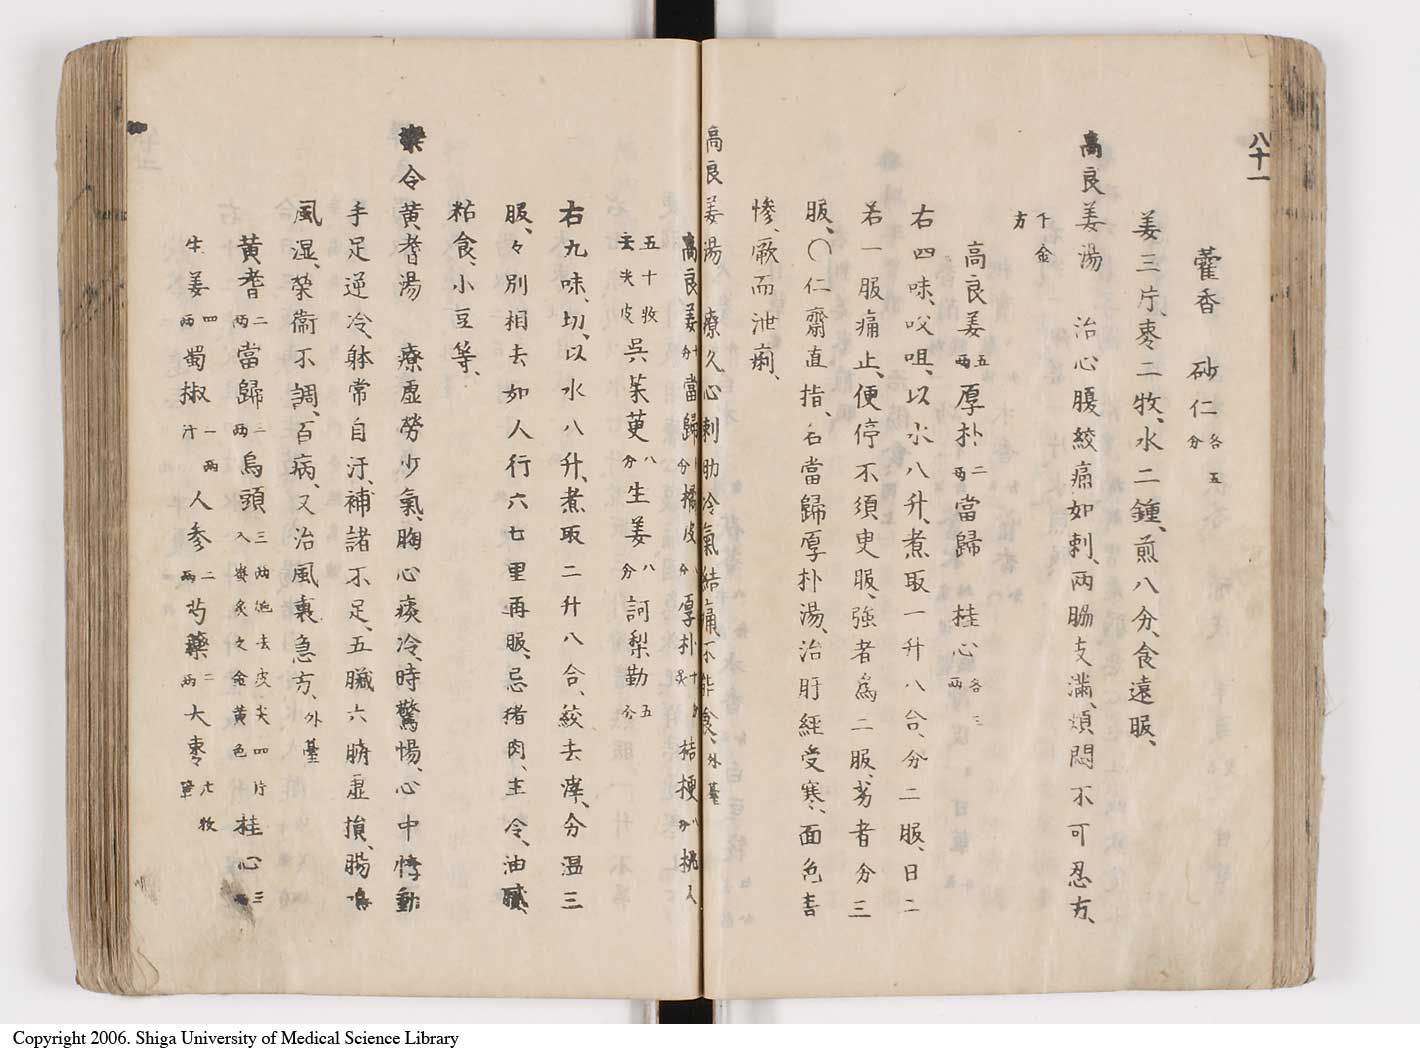 八十一
藿香 砂仁各五分
姜三片、枣二牧、水二鍾、煎八分、食遠服、
高良姜湯 治心腹絞痛如刺、両脇支満、煩悶不可忍方、
下金方
高良姜五両厚朴二両當歸 桂心各三両
右四味、㕮咀、以水八升、煮取一升八合、分二服、日二
若一服痛止、便停不須更服、強者為二服、劣者分三
服、〇仁齋直指、名當歸厚朴湯、治肝經受寒、面色青
惨、厥而泄痢、
高良姜湯 療久心刺肋冷氣結痛、不能食、外臺
高良姜十分當歸八分橘皮八分厚朴十分炙桔梗八分桃人
五十牧去尖皮呉茱萸八分生姜八分訶梨勒五分
右九味、切、以水八升、煮取二升八合、絞去滓、分温三
服、々別相去如人行六七里再服、忌猪肉、生冷、油膩、
粘食、小豆等、
樂令黄耆湯 療虚勞少氣、胸心痰冷、時驚惕、心中悸動
手足逆冷、躰常自汗、補諸不足、五臓六腑虚損、腸鳴
風湿、榮衞不調、百病、又治風裏急方、外臺
黄耆二両當歸二両烏頭三両炮去皮尖四片入蜜炙之金黄色桂心三
生姜四両蜀椒一両汗人参二両芍藥二両大枣牧